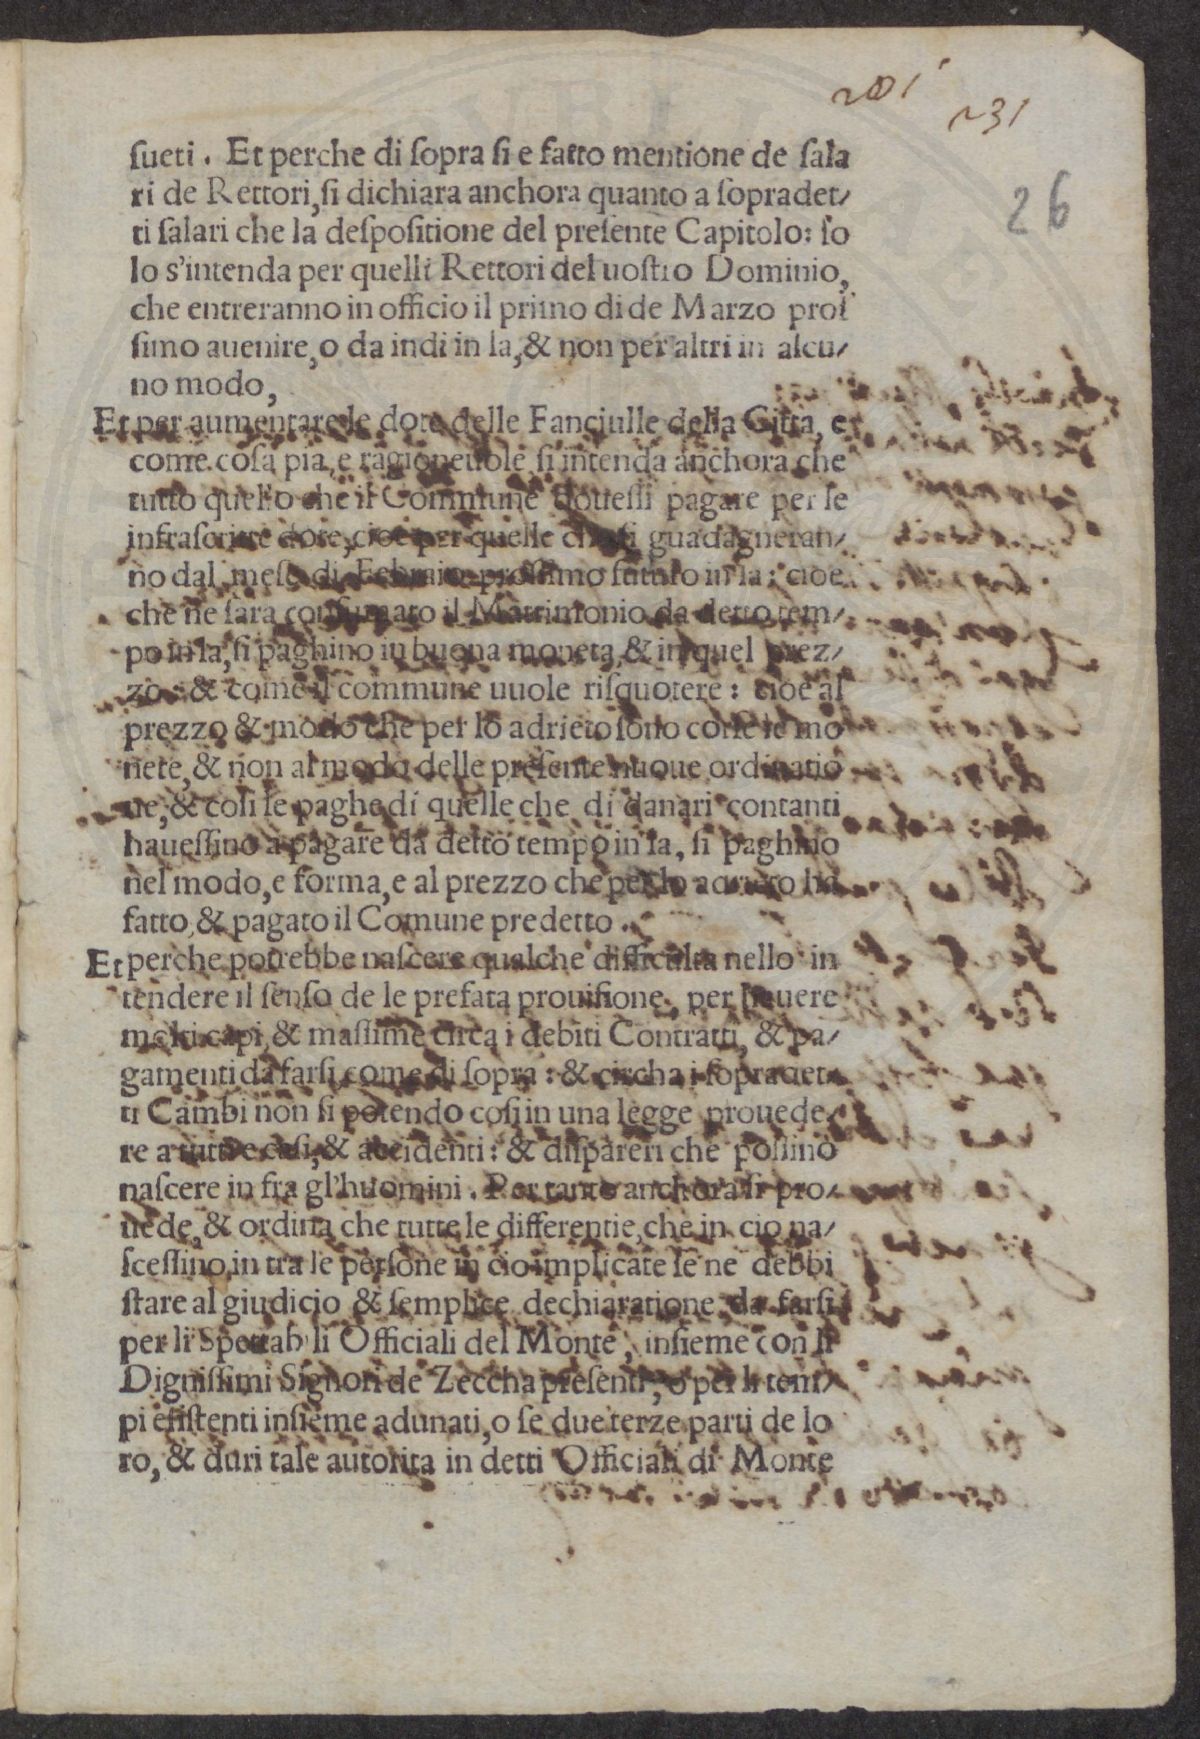 201
231
26
sueti. Et perche di sopra si e fatto mentione de sala
ri de Rettori, si dichiara anchora quanto a sopradet/
ti salari che la despositione del presente Capitolo: so
lo s'intenda per quelli Rettori del uostro Dominio,
che entreranno in officio il primo di de Marzo pros
simo auenire, o da indi in la, & non per altri in alcu/
no modo,
Et per aumentare le dote delle Fanciulle della Citta, e
come cosa pia, e ragioneuole si intenda anchora che
tutto quello che il Commune douessi pagare per le
infrascritte dote, cioe per quelle che si guadagneran/
no dal mese di Febraio prossimo futuro in la: cioe
che ne sara consumato il Matrimonio da detto tem/
po in la, si paghino in buona moneta, & in quel prez/
zo: & come il commune uuole risquotere: cioe al
prezzo & modo che per lo adrieto sono corse le mo
nete, & non al modo delle presente nuoue ordinatio
ne, & cosi le paghe di quelle che di danari contanti
hauessino a pagare da detto tempo in la, si paghino
nel modo, e forma, e al prezzo che per lo adrieto ha
fatto, & pagato il Comune predetto.
Et perche potrebbe nascere qualche difficulta nello in
tendere il senso de le prefata prouisione, per hauere
molti capi, & massime circa i debiti Contratti, & pa/
gamenti da farsi come di sopra: & circha i sopradet
ti Cambi non si potendo cosi in una legge prouede
re a tutti e casi, & accidenti: & dispareri che possino
nascere in fra gl'huomini. Per tanto anchora si pro/
uede, & ordina che tutte le differentie, che in cio na/
scessino, in tra le persone in cio implicate se ne debbi
stare al giudicio & semplice dechiaratione da farsi
per li Spettab li Officiali del Monte, insieme con li
Dignissimi Signori de Zeccha presenti, o per li tem/
pi esistenti insieme adunati, o le due terze parti de lo
ro, & duri tale autorita in detti Officiali di Monte